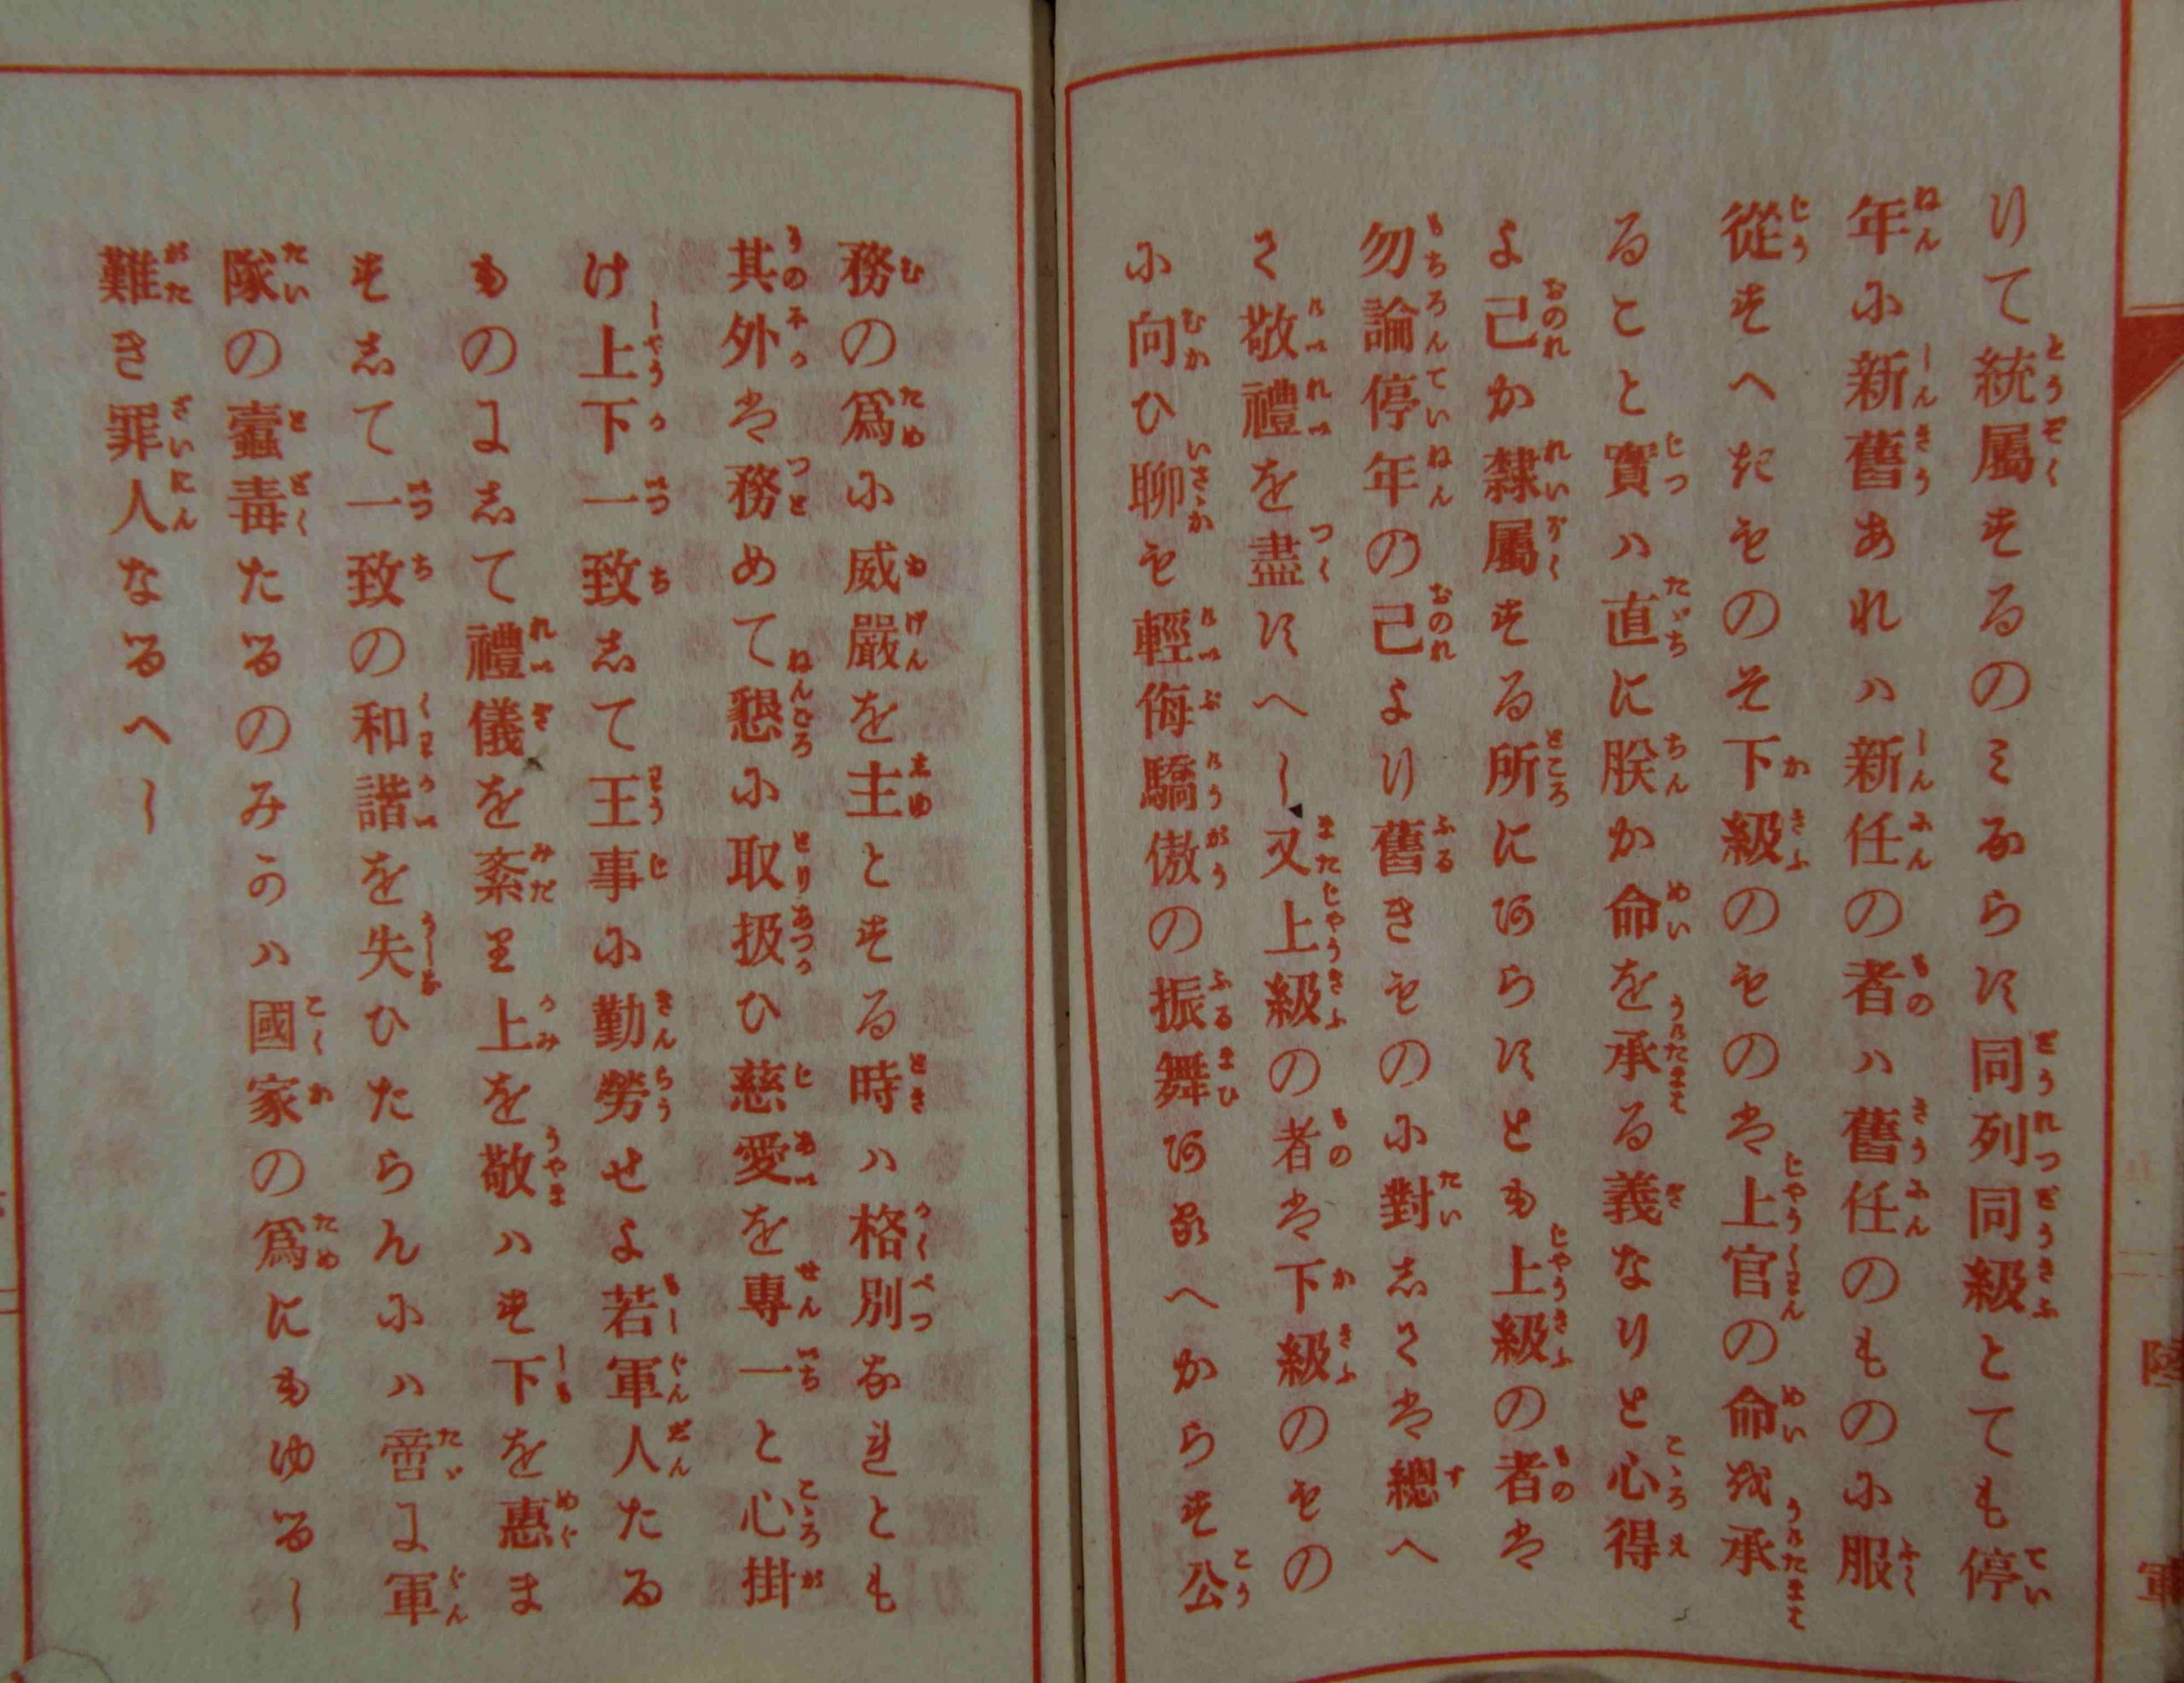 りて統屬するのミならす同列同級とても停
年に新舊あれハ新任の者ハ舊任のものに服
從すへきものそ下級のものは上官の命を承
ること實ハ直に朕か命を承る義なりと心得
よ己か隸屬する所にあらすとも上級の者は
勿論停年の己より舊きものに對しては總へ
て敬禮を盡すへし又上級の者は下級のもの
に向ひ聊も輕侮驕傲の振舞あるへからす公
務の爲に威嚴を主とする時ハ格別なれとも
其外は務めて懇に取扱ひ慈愛を專一と心掛
け上下一致して王事に勤勞せよ若軍人たる
ものにして禮儀を紊り上を敬ハす下を惠ま
すして一致の和諧を失ひたらんにハ啻に軍
隊の蠧毒たるのみかハ國家の爲にもゆるし
難き罪人なるへし
陸
軍